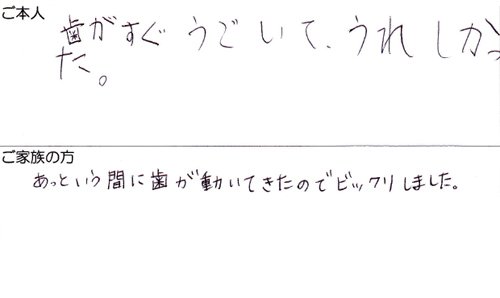 ご本人
歯がすぐうごいて、うれしかっ
た。
ご家族の方
あっという間に歯が動いてきたのでビックリしました。